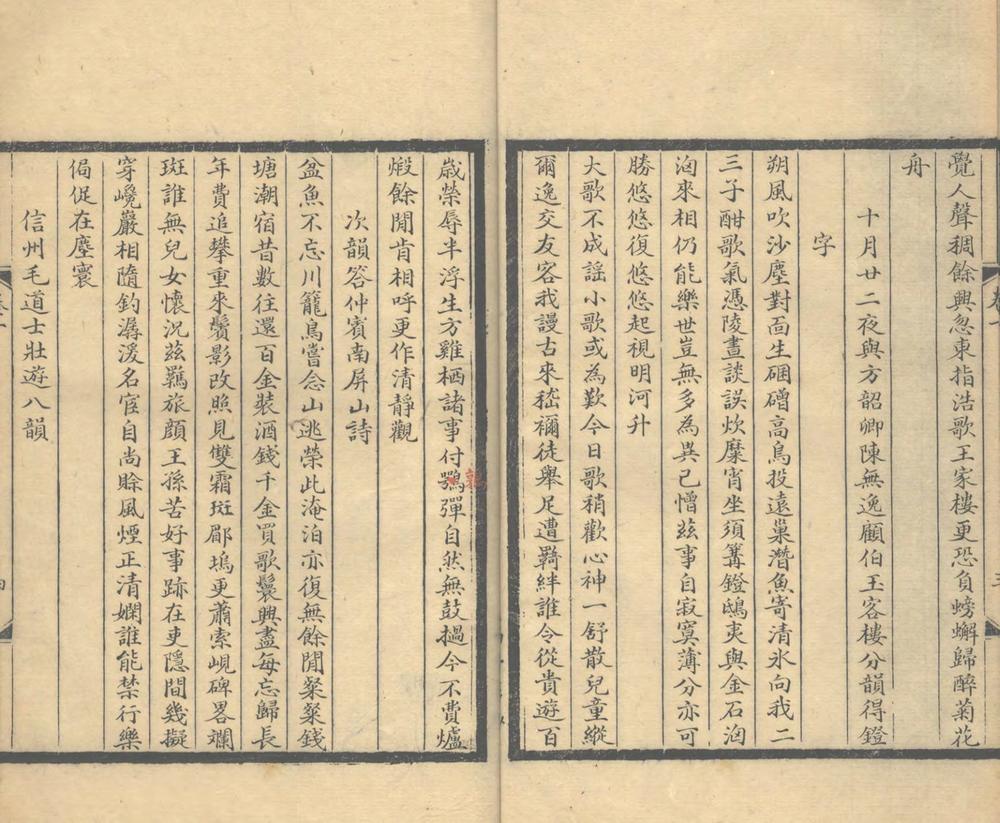 覺人聲稠餘興忽東指浩歌王家樓更恐負螃蠏歸醉菊花
舟
十月廿二夜與方韶卿陳無逸顧伯玉客樓分韻得鐙
字
朔風吹沙塵對面生硱磳高鳥投遠巢潛魚寄清氷向我二
三子酣歌氣憑陵晝談誤炊糜宵坐須篝鐙鴟夷與金石洶
洶來相仍能樂世豈無多為異己憎茲事自寂寞薄分亦可
勝悠悠復悠悠起視明河升
大歌不成謡小歌或為歎今日歌稍歡心神一舒散兒童縱
爾逸交友客我謾古來嵇禰徒舉足遭羇絆誰令從貴遊百
歳榮辱半浮生方雞栖諸事付鶚彈自然無鼓撾今不費爐
煅餘閒肯相呼更作清靜觀
次韻答仲賓南屏山詩
盆魚不忘川籠鳥嘗念山逃榮此淹泊亦復無餘閒粲粲錢
塘潮宿昔數往還百金裝酒錢千金買歌鬟興盡每忘歸長
年費追攀重來鬢影改照見雙霜斑郿塢更蕭索峴碑畧斕
斑誰無兒女懷況茲羈旅顔王孫苦好事跡在吏隱間幾擬
穿巉巖相隨釣潺湲名宦自尚賒風煙正清嫻誰能禁行樂
侷促在塵寰
信州毛道士壯遊八韻